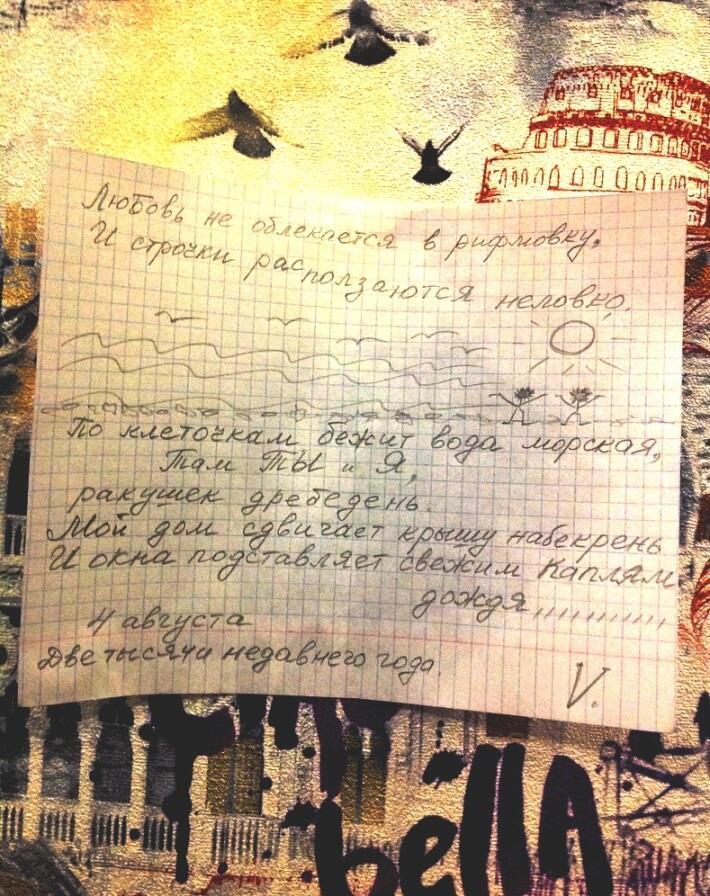 Любовь не облекается в рифмовку,
И строчки расползаются неловко.
По клеточкам бежит вода морская,
Там ТЫ и Я,
ракушек дребедень.
Мой дом сдвигает крышу набекрень
И окна подставляет свежим каплям
дождя,,,,,,,,,,
4 августа
Две тысячи недавнего года.
V.
bellA